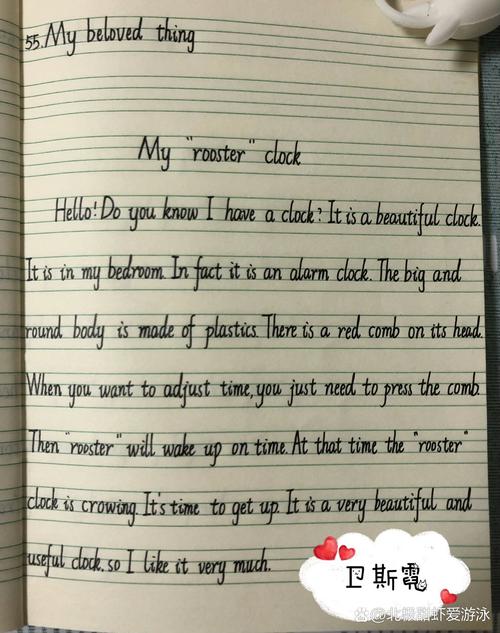 55. My beloved thing
My "rooster" clock
Hello! Do you know I have a clock? It is a beautiful clock.
It is in my bedroom. In fact it is an alarm clock. The big and
round body is made of plastics. There is a red comb on its head.
When you want to adjust time, you just need to press the comb.
Then "rooster" will wake up on time. At that time the "rooster"
clock is crowing. It's time to get up. It is a very beautiful and
useful clock. so I like it very much.
卫斯霓
@北极甜虾爱游泳